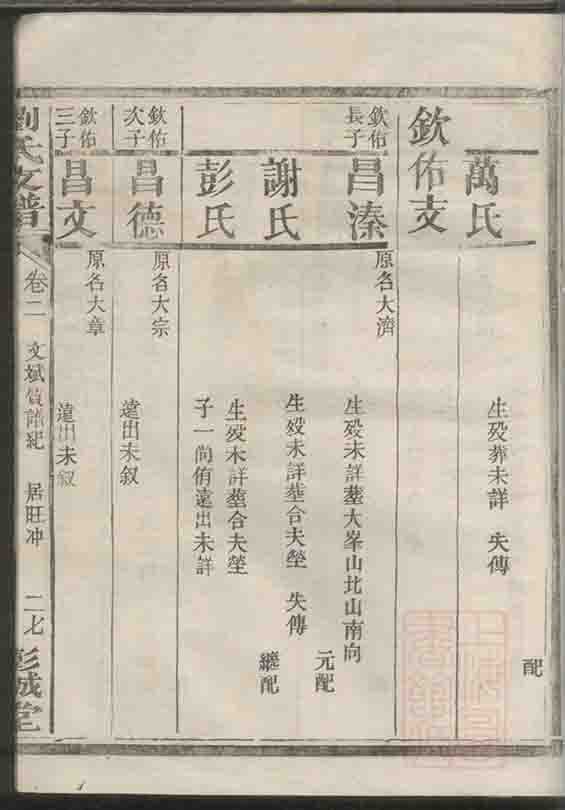 配
萬氏
生殁葬未詳 失傳
欽佑支
欽佑長子
昌溱
原名大濟
生殁未詳塟大峯山北山南向
元配
謝氏
生殁未詳塟合夫塋 失傳
繼配
彭氏
生殁未詳塟合夫塋
子一尚侑遠出未詳
欽佑次子
昌德
原名大宗
遠出未叙
欽佑三子
昌文
原名大章
遠出未叙
劉氏支譜 卷二 文斌 居旺冲 二七 彭城堂